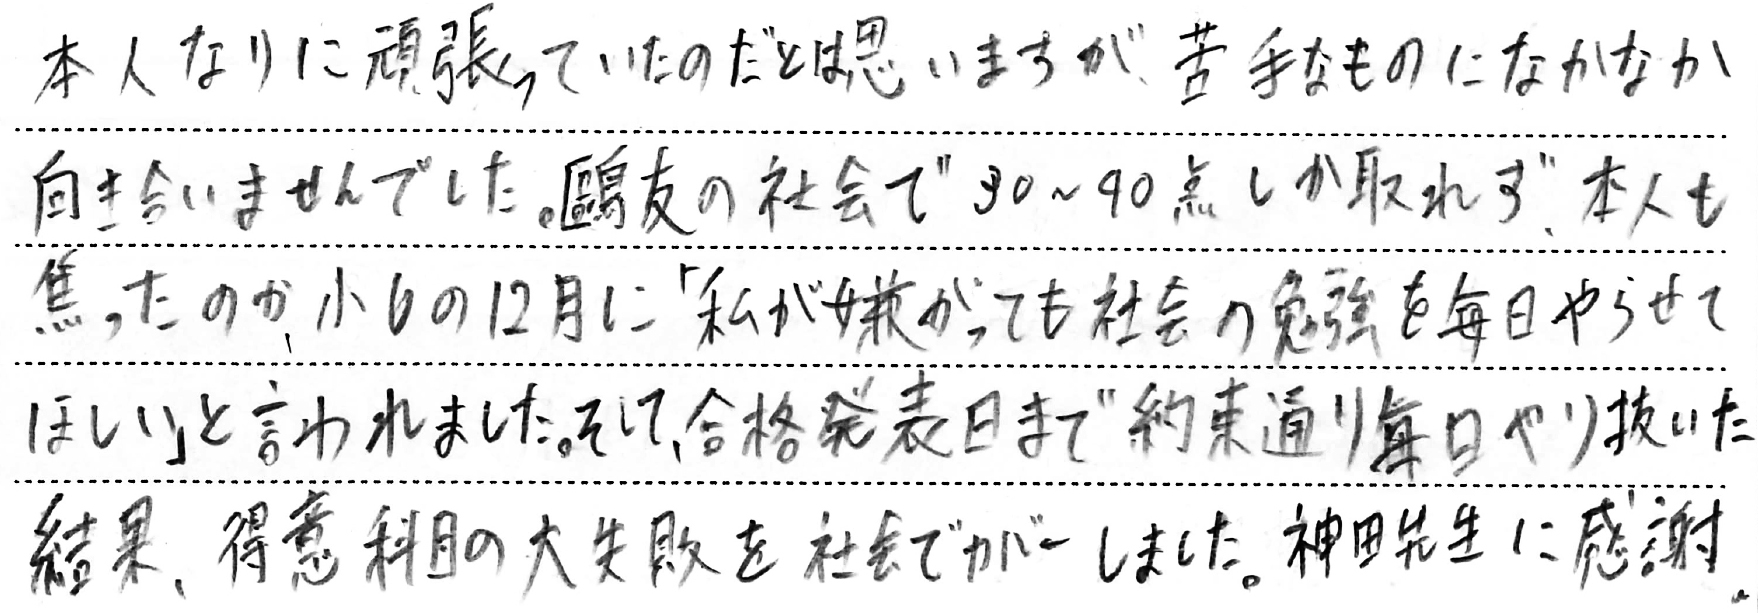 本人なりに頑張っていたのだとは思いますが、苦手なものになかなか
向き合いませんでした。鷗友の社会で30~40点しか取れず、本人も
焦ったのか、小6の12月に「私が嫌がっても社会の勉強を毎日やらせて
ほしい」と言われました。そして、合格発表日まで約束通り毎日やり抜いた
結果、得意科目の大失敗を社会でカバーしました。神田先生に感謝。